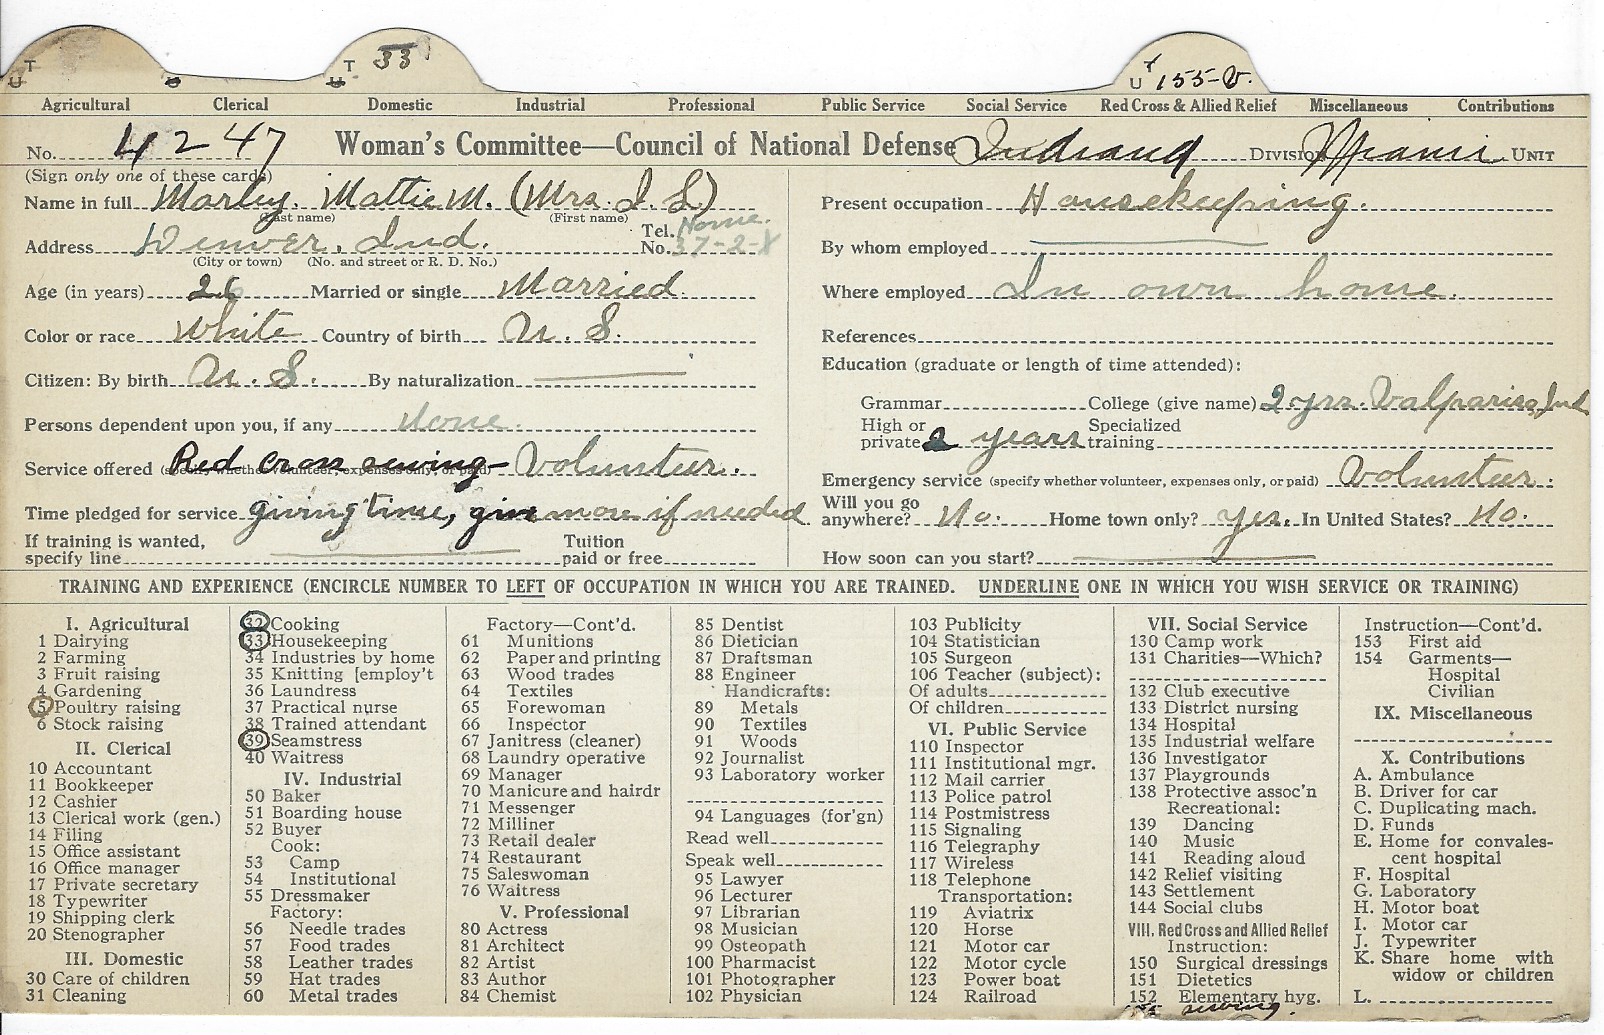 T
U
33
T
U
T
U 155-V.
Agricultural Clerical Domestic Industrial Professional Public Service Social Service Red Cross & Allied Relief Miscellaneous Contributions
No. 4247 Woman's Committee—Council of National Defense Indiana DIVISION Miami UNIT
(Sign only one of these cards)
Name in full Marley. Mattie M. (Mrs. I. L.)
(Last name) (First name)
Address Denver, Ind. Tel. No. Home. 37-2-X
(City or town) (No. and street or R. D. No.)
Age (in years) 26 Married or single Married.
Color or race White Country of birth U. S.
Citizen: By birth U. S. By naturalization
Persons dependent upon you, if any None.
Service offered (specify whether volunteer, expenses only, or paid) Red Cross sewing— Volunteer.
Time pledged for service giving time, give more if needed
If training is wanted, specify line Tuition paid or free
Present occupation Housekeeping.
By whom employed
Where employed In own home.
References
Education (graduate or length of time attended):
Grammar College (give name) 2 yrs. Valpariso, Ind
High or private 2 years Specialized training
Emergency service (specify whether volunteer, expenses only, or paid) Volunteer.
Will you go anywhere? No. Home town only? yes. In United States? No.
How soon can you start?
TRAINING AND EXPERIENCE (ENCIRCLE NUMBER TO LEFT OF OCCUPATION IN WHICH YOU ARE TRAINED. UNDERLINE ONE IN WHICH YOU WISH SERVICE OR TRAINING)
I. Agricultural
1 Dairying
2 Farming
3 Fruit raising
4 Gardening
5 Poultry raising
6 Stock raising
II. Clerical
10 Accountant
11 Bookkeeper
12 Cashier
13 Clerical work (gen.)
14 Filing
15 Office assistant
16 Office manager
17 Private secretary
18 Typewriter
19 Shipping clerk
20 Stenographer
III. Domestic
30 Care of children
31 Cleaning
32 Cooking
33 Housekeeping
34 Industries by home
35 Knitting [employ't
36 Laundress
37 Practical nurse
38 Trained attendant
39 Seamstress
40 Waitress
IV. Industrial
50 Baker
51 Boarding house
52 Buyer
Cook:
53 Camp
54 Institutional
55 Dressmaker
Factory:
56 Needle trades
57 Food trades
58 Leather trades
59 Hat trades
60 Metal trades
Factory—Cont'd.
61 Munitions
62 Paper and printing
63 Wood trades
64 Textiles
65 Forewoman
66 Inspector
67 Janitress (cleaner)
68 Laundry operative
69 Manager
70 Manicure and hairdr
71 Messenger
72 Milliner
73 Retail dealer
74 Restaurant
75 Saleswoman
76 Waitress
V. Professional
80 Actress
81 Architect
82 Artist
83 Author
84 Chemist
85 Dentist
86 Dietician
87 Draftsman
88 Engineer
Handicrafts:
89 Metals
90 Textiles
91 Woods
92 Journalist
93 Laboratory worker
94 Languages (for'gn)
Read well
Speak well
95 Lawyer
96 Lecturer
97 Librarian
98 Musician
99 Osteopath
100 Pharmacist
101 Photographer
102 Physician
103 Publicity
104 Statistician
105 Surgeon
106 Teacher (subject):
Of adults
Of children
VI. Public Service
110 Inspector
111 Institutional mgr.
112 Mail carrier
113 Police patrol
114 Postmistress
115 Signaling
116 Telegraphy
117 Wireless
118 Telephone
Transportation:
119 Aviatrix
120 Horse
121 Motor car
122 Motor cycle
123 Power boat
124 Railroad
VII. Social Service
130 Camp work
131 Charities—Which?
132 Club executive
133 District nursing
134 Hospital
135 Industrial welfare
136 Investigator
137 Playgrounds
138 Protective assoc'n
Recreational:
139 Dancing
140 Music
141 Reading aloud
142 Relief visiting
143 Settlement
144 Social clubs
VIII. Red Cross and Allied Relief
Instruction:
150 Surgical dressings
151 Dietetics
152 Elementary hyg.
155 sewing.
Instruction—Cont'd.
153 First aid
154 Garments—
Hospital
Civilian
IX. Miscellaneous
X. Contributions
A. Ambulance
B. Driver for car
C. Duplicating mach.
D. Funds
E. Home for convales-
cent hospital
F. Hospital
G. Laboratory
H. Motor boat
I. Motor car
J. Typewriter
K. Share home with
widow or children
L.